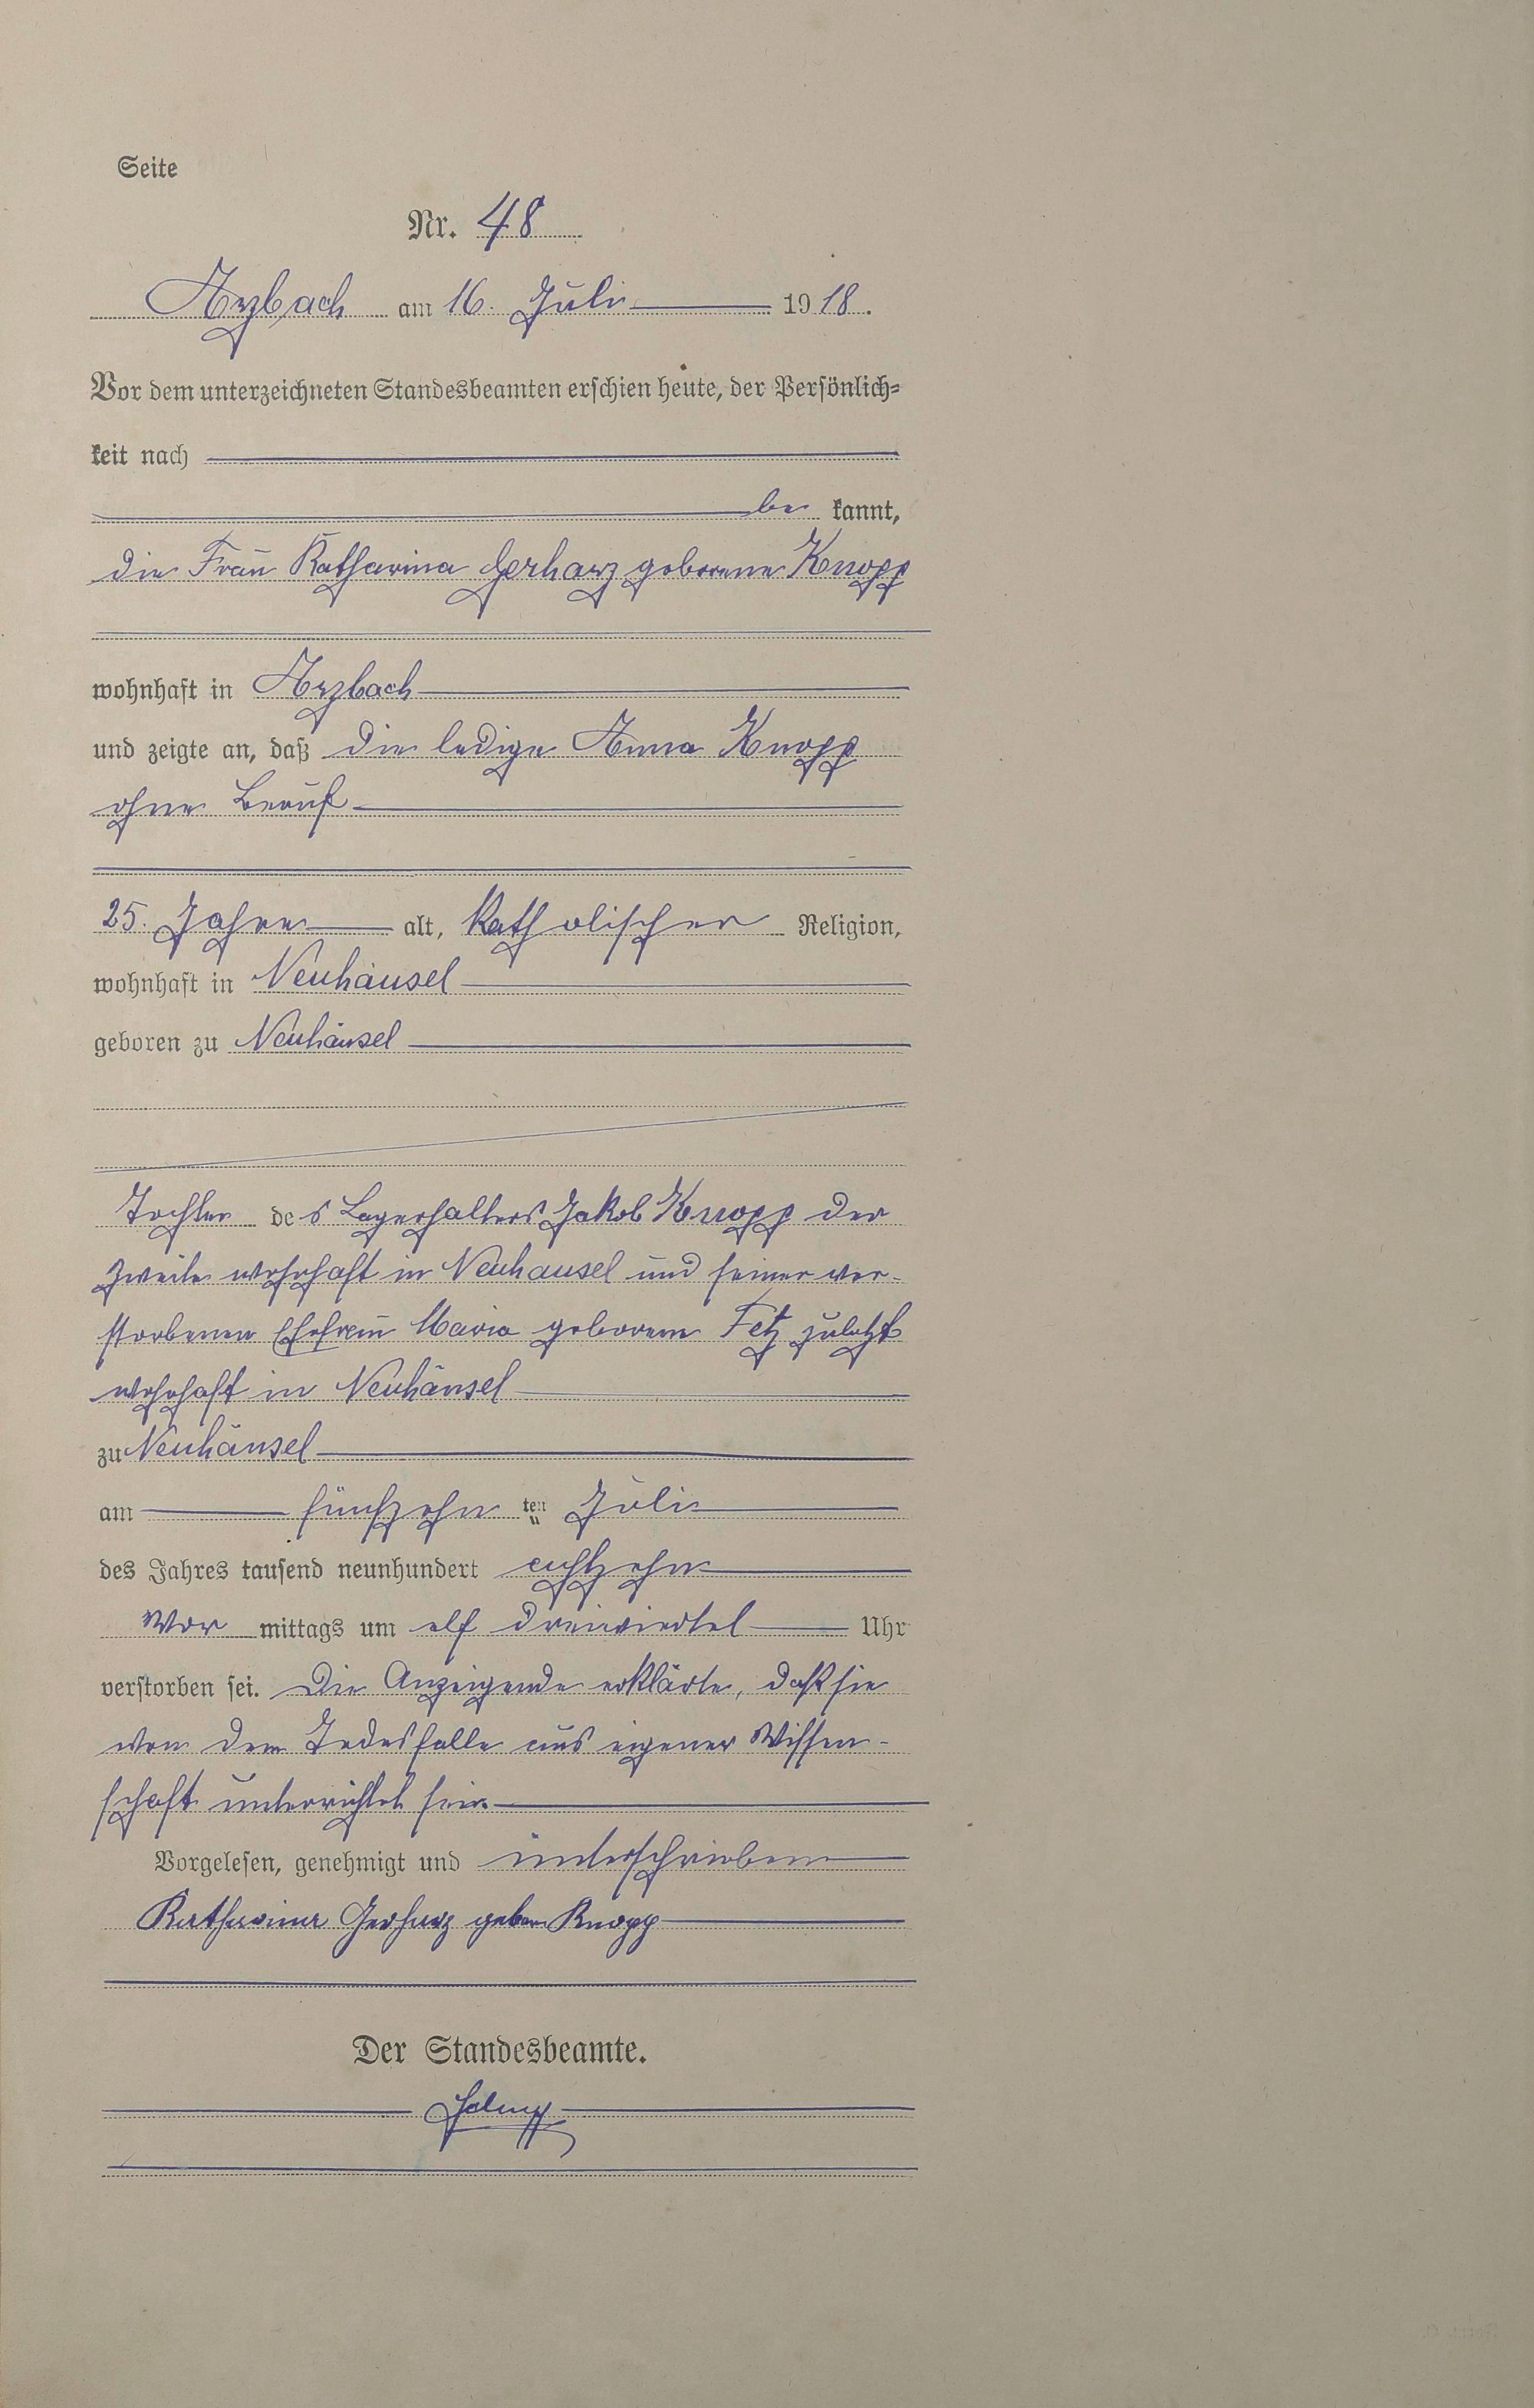 Seite
Nr. 48
Arzbach am 16. Juli 1918.
Vor dem unterzeichneten Standesbeamten erschien heute, der Persönlich-
keit nach
be kannt,
die Frau Katharina Gerharz geborene Knopp
wohnhaft in Arzbach
und zeigte an, daß die ledige Anna Knopp
ohne Beruf
25. Jahre alt, katholischer Religion,
wohnhaft in Neuhäusel
geboren zu Neuhäusel
Tochter des Lagerhalters Jakob Knopp der
Zweite wohnhaft in Neuhäusel und seiner ver-
storbenen Ehefrau Maria geborene Fetz zuletzt
wohnhaft in Neuhäusel
zu Neuhäusel
am fünfzehn ten Juli
des Jahres tausend neunhundert achtzehn
Vor mittags um elf dreiviertel Uhr
verstorben sei. Die Anzeigende erklärte, daß sie
von dem Todesfalle aus eigener Wissen-
schaft unterrichtet sei.
Vorgelesen, genehmigt und unterschrieben
Katharina Gerharz gebor Knopp
Der Standesbeamte.